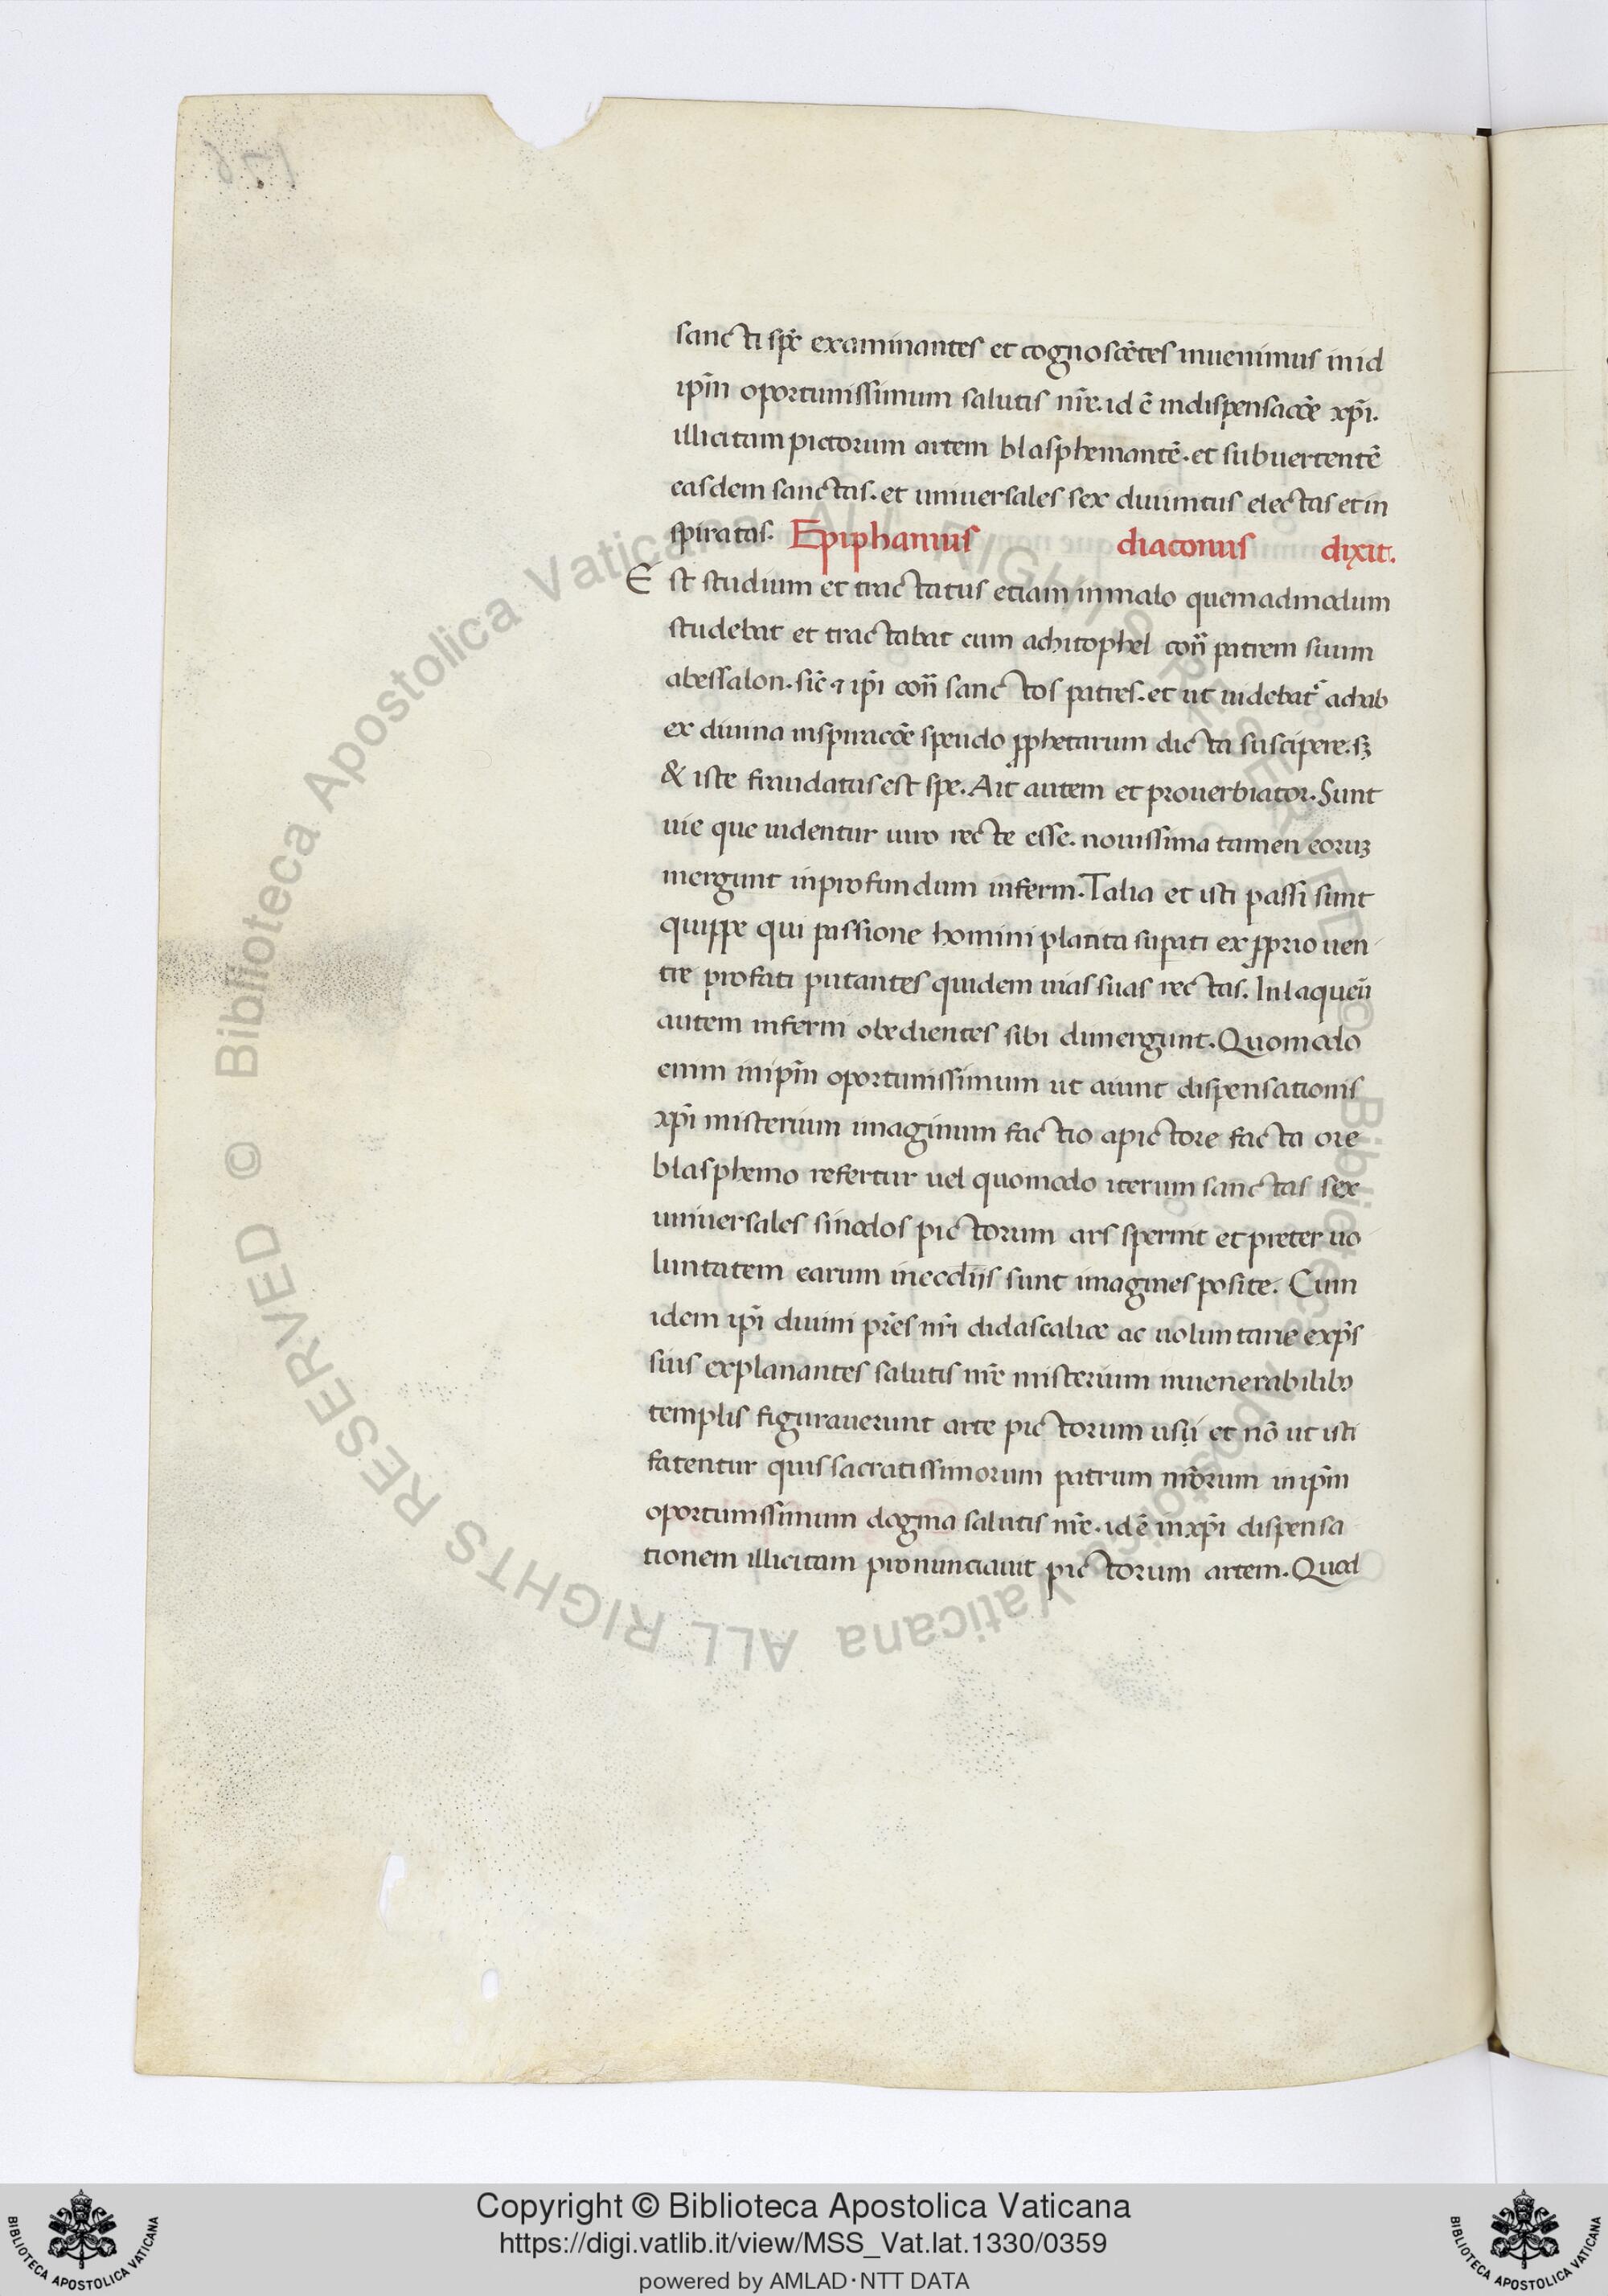 sancti spũ examinantes et cognoscẽtes inuenimus in id
ipm̃ oportunissimum salutis nr̃e. id ẽ in dispensacõe xp̃i.
illicitam pictorum artem blasphemantẽ. et subuertentẽ
easdem sanctas. et uniuersales sex diuinitus electas et in
spiratas. Epiphanius diaconus dixit.
Est studium et tractatus etiam in malo quemadmodum
studebat et tractabat cum achitophel patrem suum
abessalon. sic̃ ⁊ ip̃i sanctos patres. et ut uidebat᷑ achab
ex diuina inspiracõe speudo ꝓphetarum dicta suscipere. sꝫ
& iste fraudatus est spe. Ait autem et prouerbiator. Sunt
uie que uidentur uiro recte esse. nouissima tamen eoruꝫ
mergunt in profundum inferni. Talia et isti passi sunt
quippe qui passione homini placita supati ex ꝓprio uen
tre profati putantes quidem uias suas rectas. In laqueũ
autem inferni obedientes sibi dimergunt. Quomodo
enim in ipm̃ oportunissimum ut aiunt dispensationis
xp̃i misterium imaginum factio a pictore facta ore
blasphemo refertur uel quomodo iterum sanctas sex
uniuersales sinodos pictorum ars spernit et preter uo
luntatem earum in ecc̃liis sunt imagines posite. Cum
idem ip̃i diuini pr̃es nr̃i didascalice ac uoluntarie exp̃s
sius explanantes salutis nr̃e misterium in uenerabilibꝫ
templis figurauerunt arte pictorum usi; et nõ ut isti
fatentur quis sacratissimorum patrum nr̃orum in ipm̃
oportunissimum dogma salutis nr̃e. id ẽ in xp̃i dispensa
tionem illicitam pronunciauit pictorum artem. Quod
176
© Biblioteca Apostolica Vaticana ALL RIGHTS RESERVED
© Biblioteca Apostolica Vaticana ALL RIGHTS RESERVED
Copyright © Biblioteca Apostolica Vaticana
https://digi.vatlib.it/view/MSS_Vat.lat.1330/0359
powered by AMLAD·NTT DATA
BIBLIOTECA APOSTOLICA VATICANA
BIBLIOTECA APOSTOLICA VATICANA